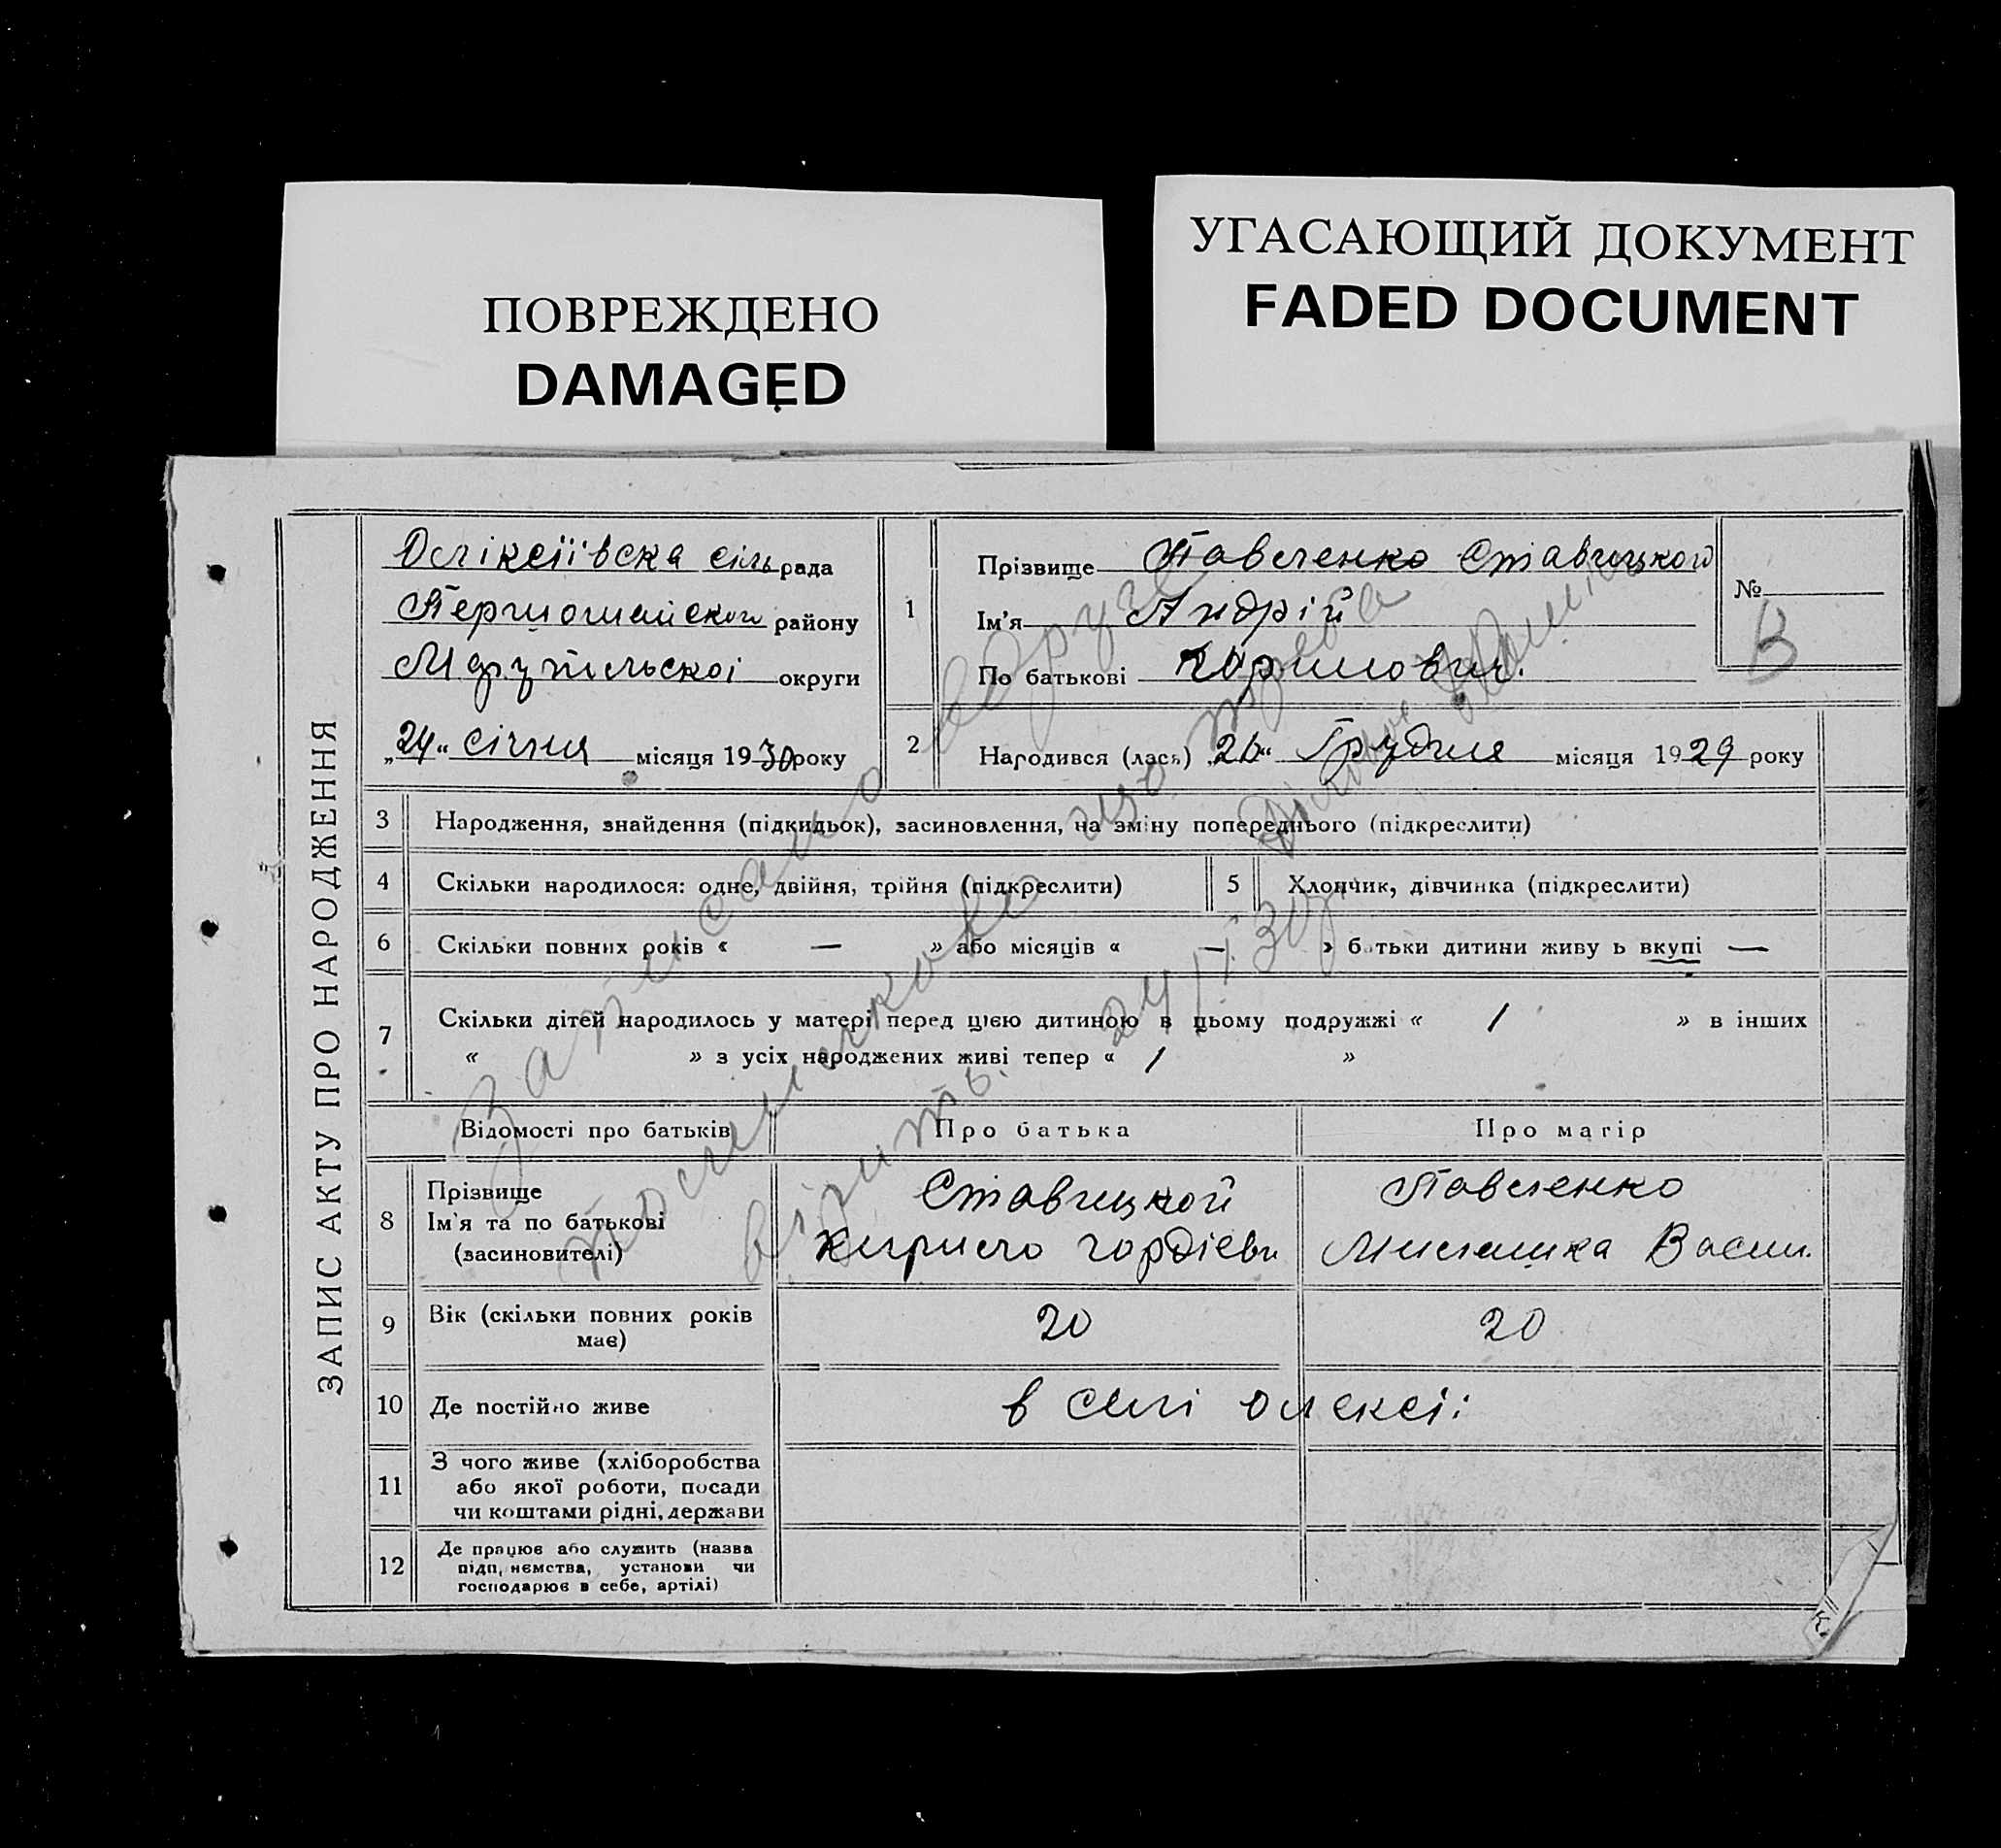 ПОВРЕЖДЕНО
DAMAGED
УГАСАЮЩИЙ ДОКУМЕНТ
FADED DOCUMENT
ЗАПИС АКТУ ПРО НАРОДЖЕННЯ
Оліксіївска сіль рада
району
округи
„24“ січня місяця 1930 року
1
Прізвище Павленко Ставицкой
Ім'я Андрій
По батькові
№
В
2
Народився (лась) „26“ Грудня місяця 1929 року
3 Народження, знайдення (підкидьок), засиновлення, на зміну попереднього (підкреслити)
4 Скільки народилося: одне, двійня, трійня (підкреслити)
5 Хлопчик, дівчинка (підкреслити)
6 Скільки повних років « — » або місяців « — » батьки дитини живу ь вкупі —
7 Скільки дітей народилось у матері перед цією дитиною в цьому подружжі « 1 » в інших
« » з усіх народжених живі тепер « 1 »
Записано вдруге
24/I 30
Відомості про батьків
Про батька
Про матір
8 Прізвище
Ім'я та по батькові
(засиновителі)
Ставицкой
Кирило гордієви
Павленко
Васил.
9 Вік (скільки повних років
має)
20
20
10 Де постійно живе
в селі олексії
11 З чого живе (хліборобства
або якої роботи, посади
чи коштами рідні, держави
12 Де працює або служить (назва
підп, нємства, установи чи
господарює в себе, артілі)